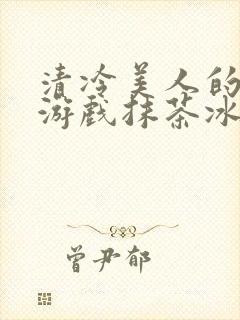 清冷美人的
游戏抹茶冰
曾尹郁